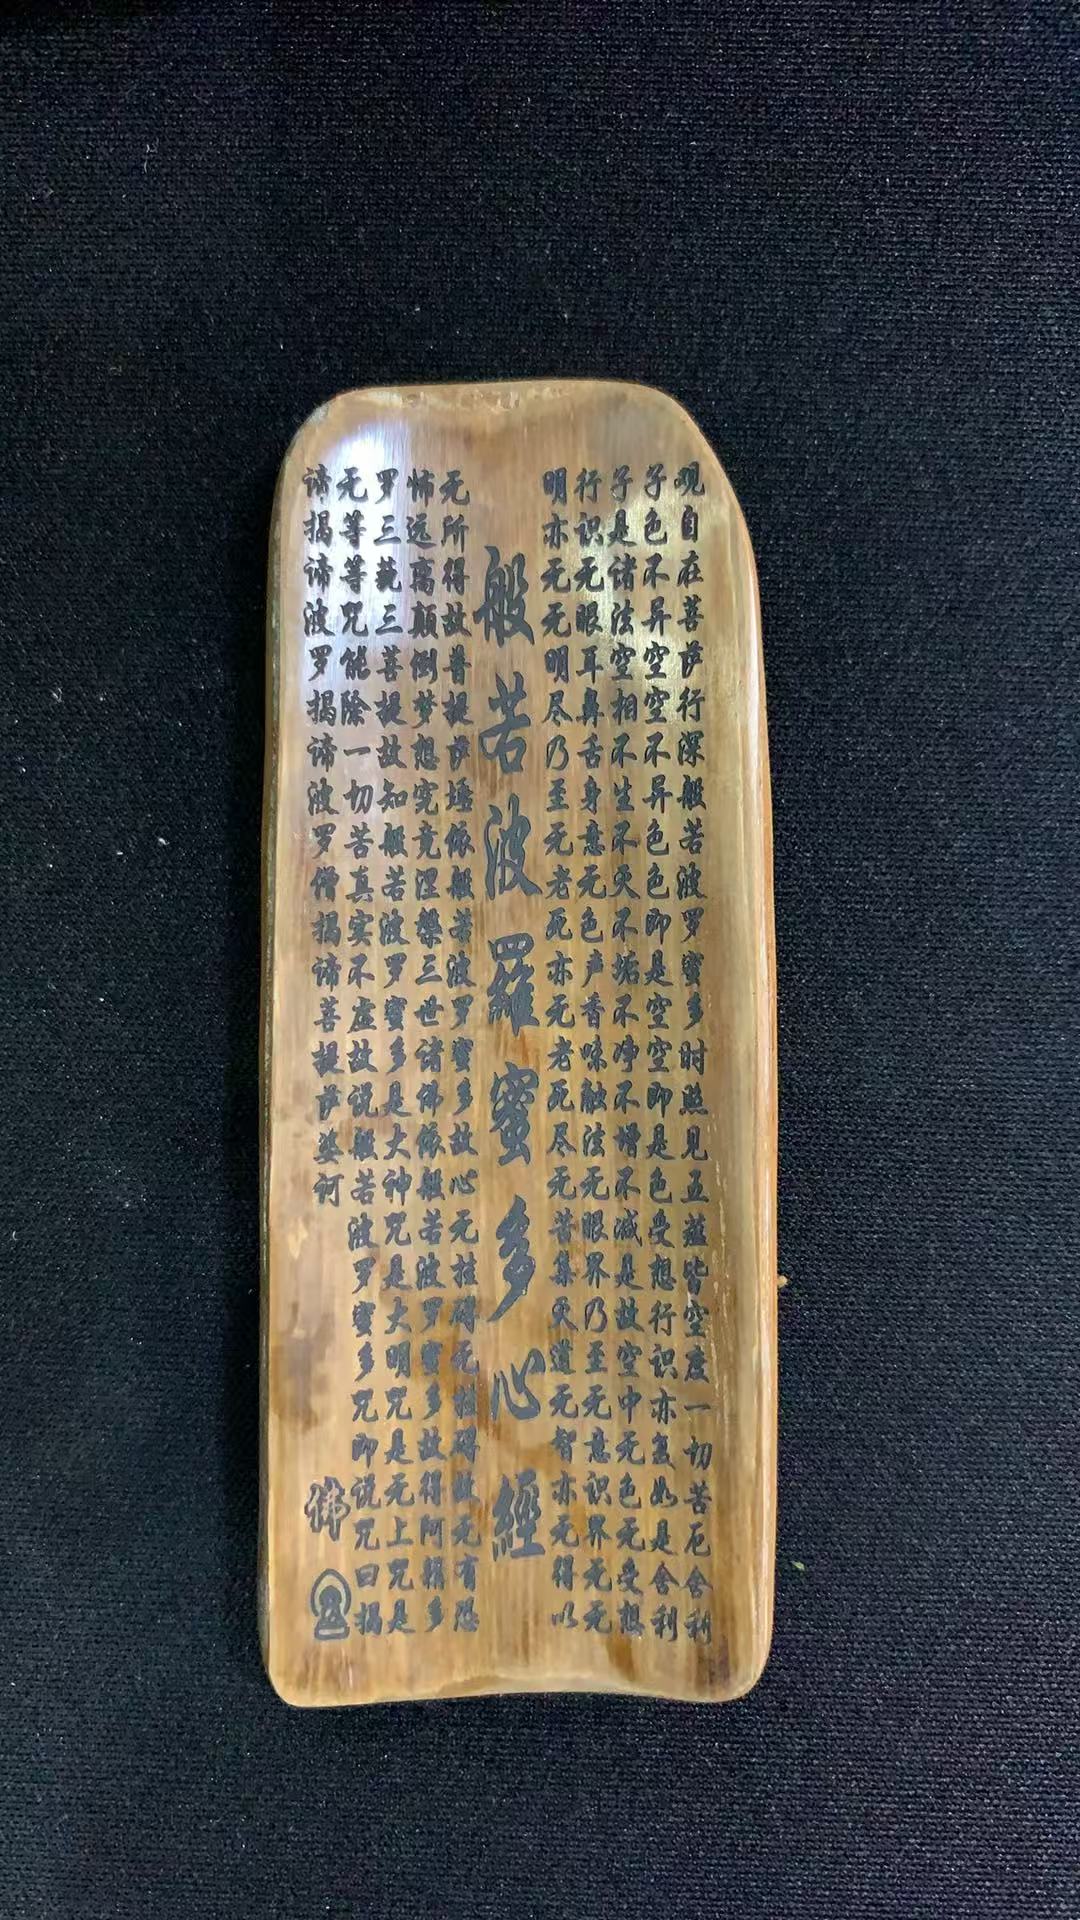 观自在菩萨行深般若波罗蜜多时照见五蕴皆空度一切苦厄舍利
子色不异空空不异色色即是空空即是色受想行识亦复如是舍利
子是诸法空相不生不灭不垢不净不增不减是故空中无色无受想
行识无眼耳鼻舌身意无色声香味触法无眼界乃至无意识界无无
明亦无无明尽乃至无老死亦无老死尽无苦集灭道无智亦无得以
般若波羅蜜多心經
无所得故菩提萨埵依般若波罗蜜多故心无挂碍无挂碍故无有恐
怖远离颠倒梦想究竟涅槃三世诸佛依般若波罗蜜多故得阿耨多
罗三藐三菩提故知般若波罗蜜多是大神咒是大明咒是无上咒是
无等等咒能除一切苦真实不虚故说般若波罗蜜多咒即说咒曰揭
谛揭谛波罗揭谛波罗僧揭谛菩提萨婆诃
佛